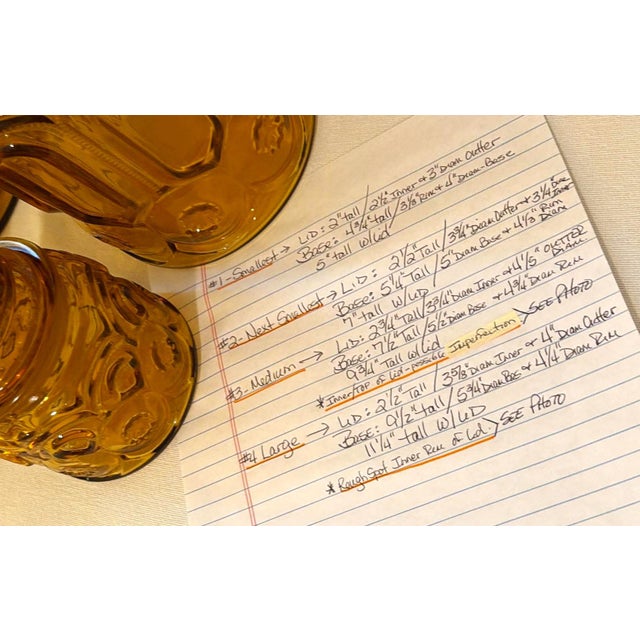 #1-Smallest → LiD: 2" tall / 2½" Inner & 3" Diam Outter
Base: 4¾" tall / 3⅓" Rim & 4" Diam-Base
5" tall w/Lid
#2-Next Smallest → LiD: 2½" Tall / 3¾" Diam Outter & 3¼" Diam Inner
Base: 5¼" Tall / 5" Diam Base & 4⅓" Rim Diam
7" tall w/LiD
#3-Medium → LiD: 2¾" Tall / 3¾" Diam Inner & 4⅕" Outter Diam
Base: 7½" Tall / 5½" Diam Base & 4¾" Diam Rim
9¾" Tall w/Lid
* Inner/Top of Lid-possible Imperfection > See Photo
#4 Large → LiD: 2½" Tall / 3⅝" Diam Inner & 4" Diam Outter
Base: 9½" tall / 5¾" Diam Bas & 4¼" Diam Rim
11¼" tall w/LiD
* Rough Spot Inner Rim of Lid > See Photo